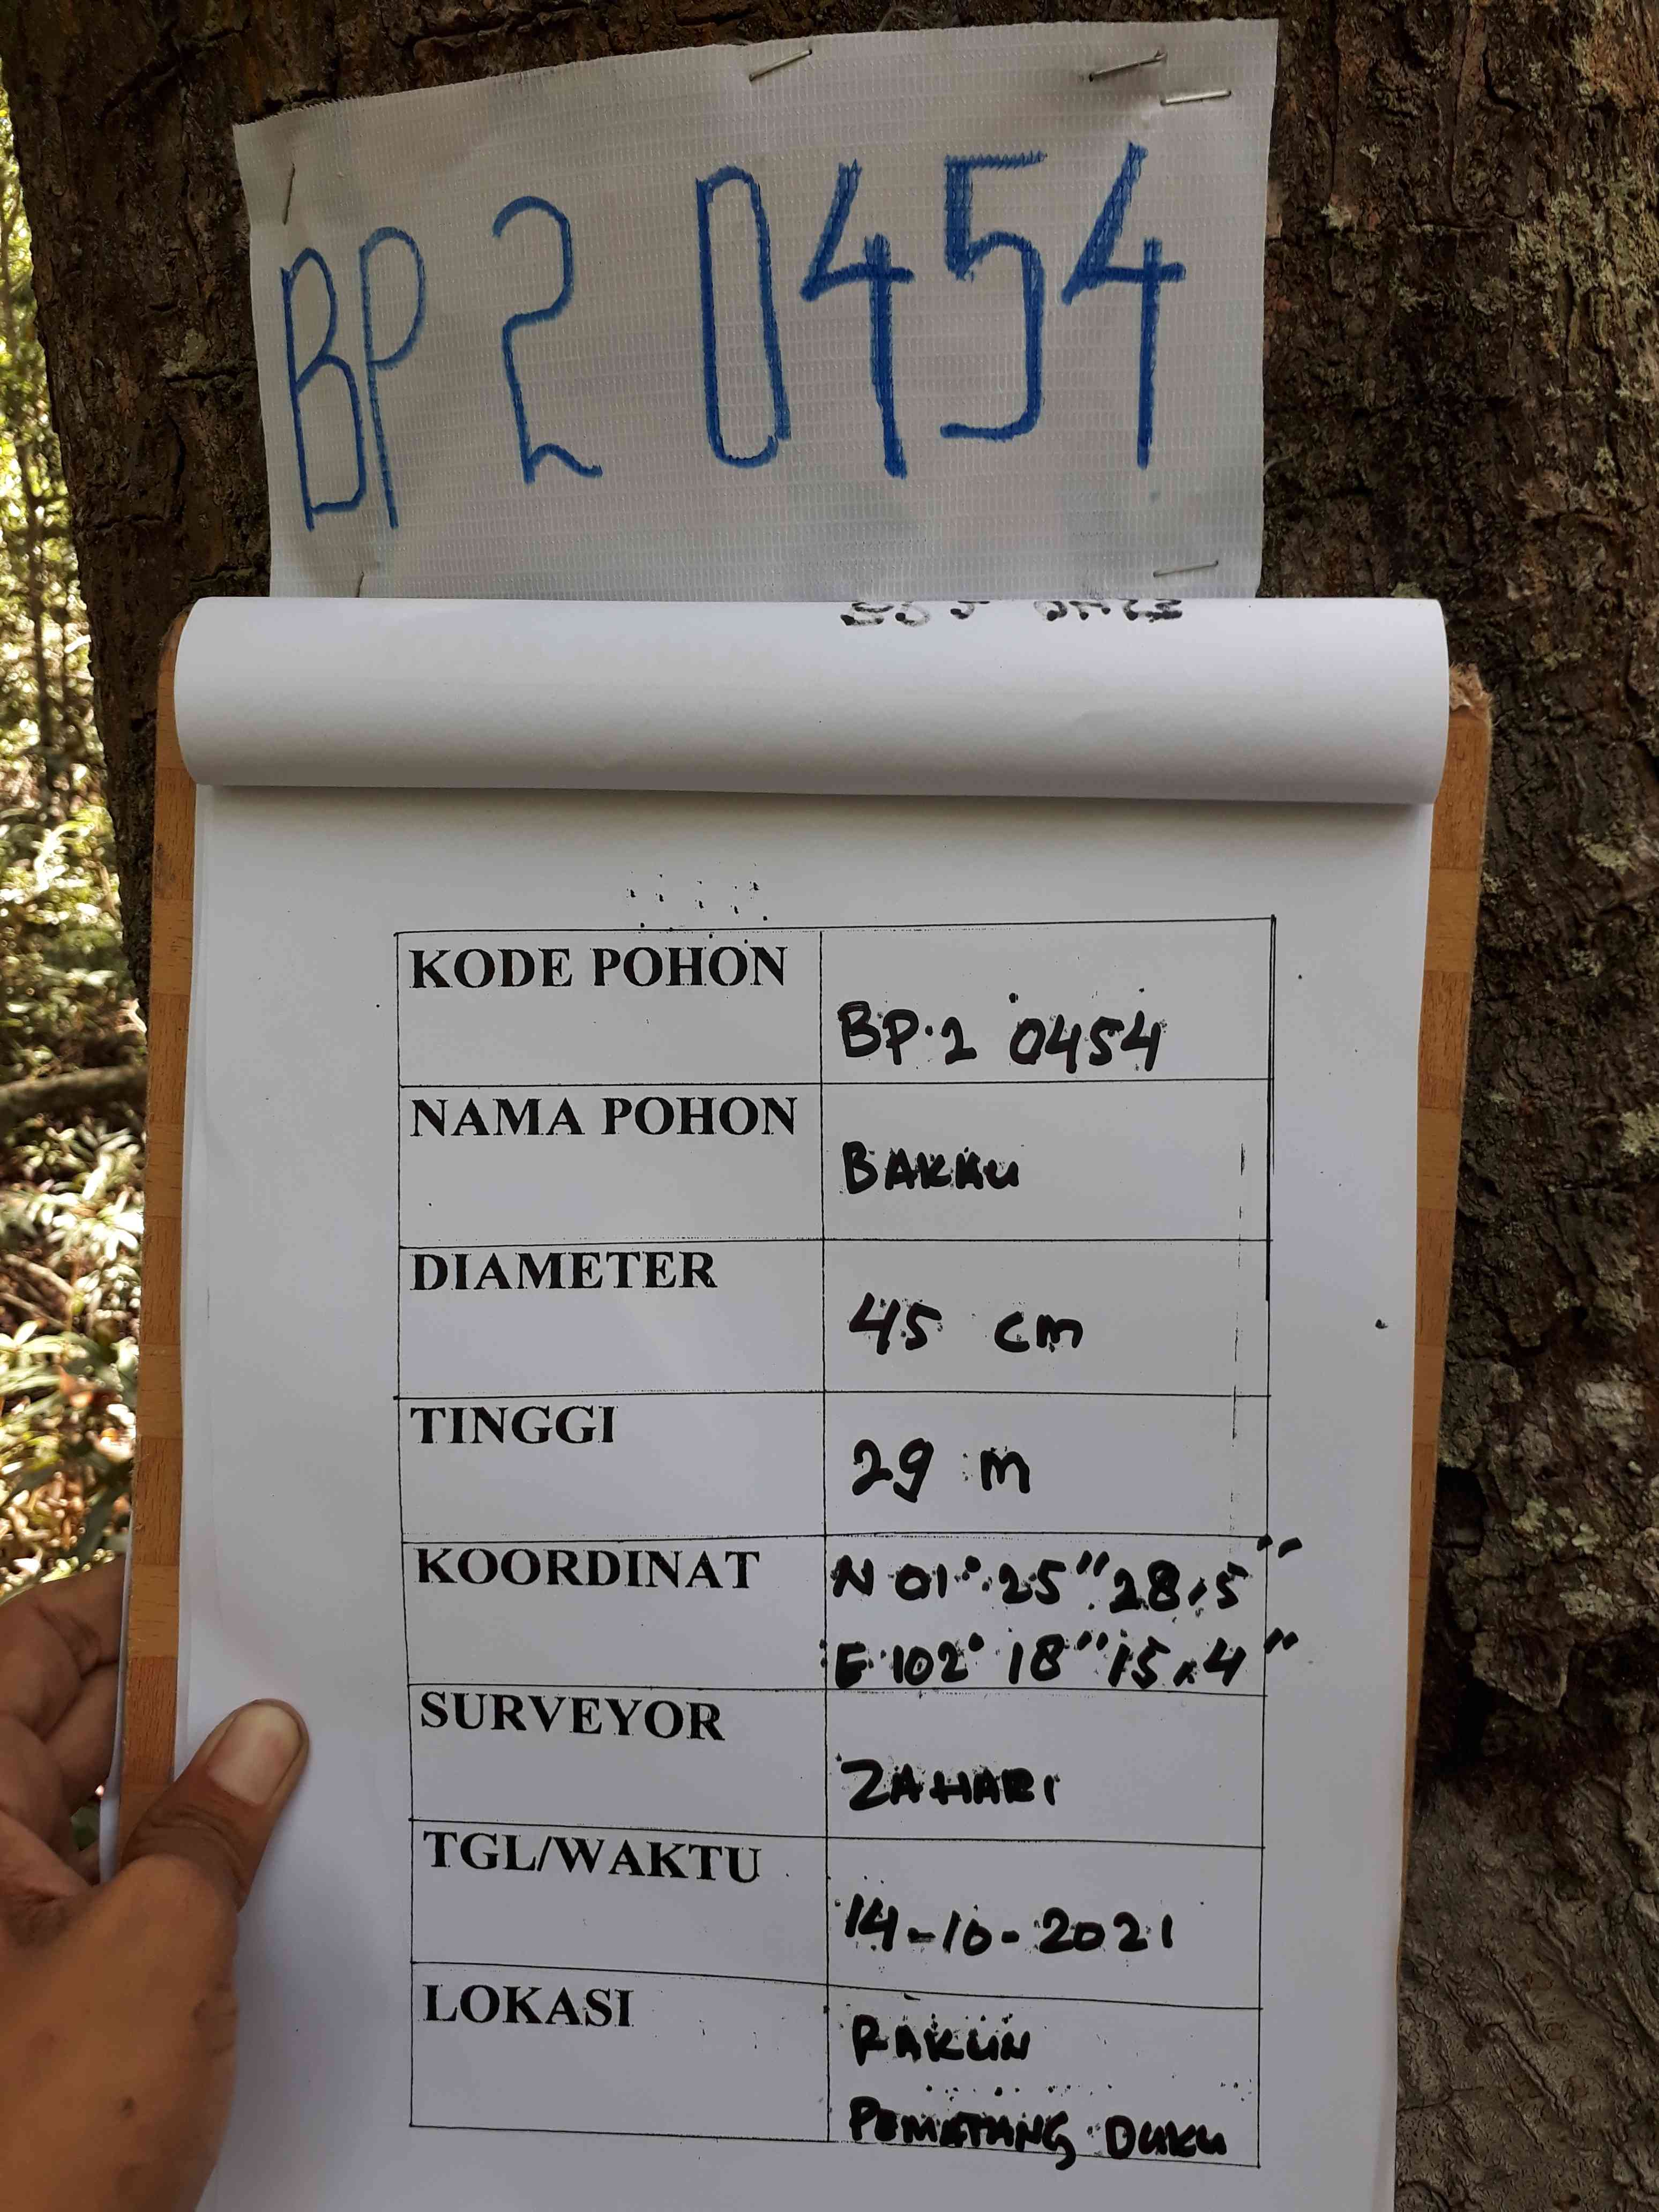 BP 2 0454
KODE POHON
BP.2 0454
NAMA POHON
BAKAU
DIAMETER
45 cm
TINGGI
29 m
KOORDINAT
N 01° 25" 28,5"
E 102° 18" 15,4"
SURVEYOR
ZAHARI
TGL/WAKTU
14-10-2021
LOKASI
RAKUN
PEMATANG DUKU